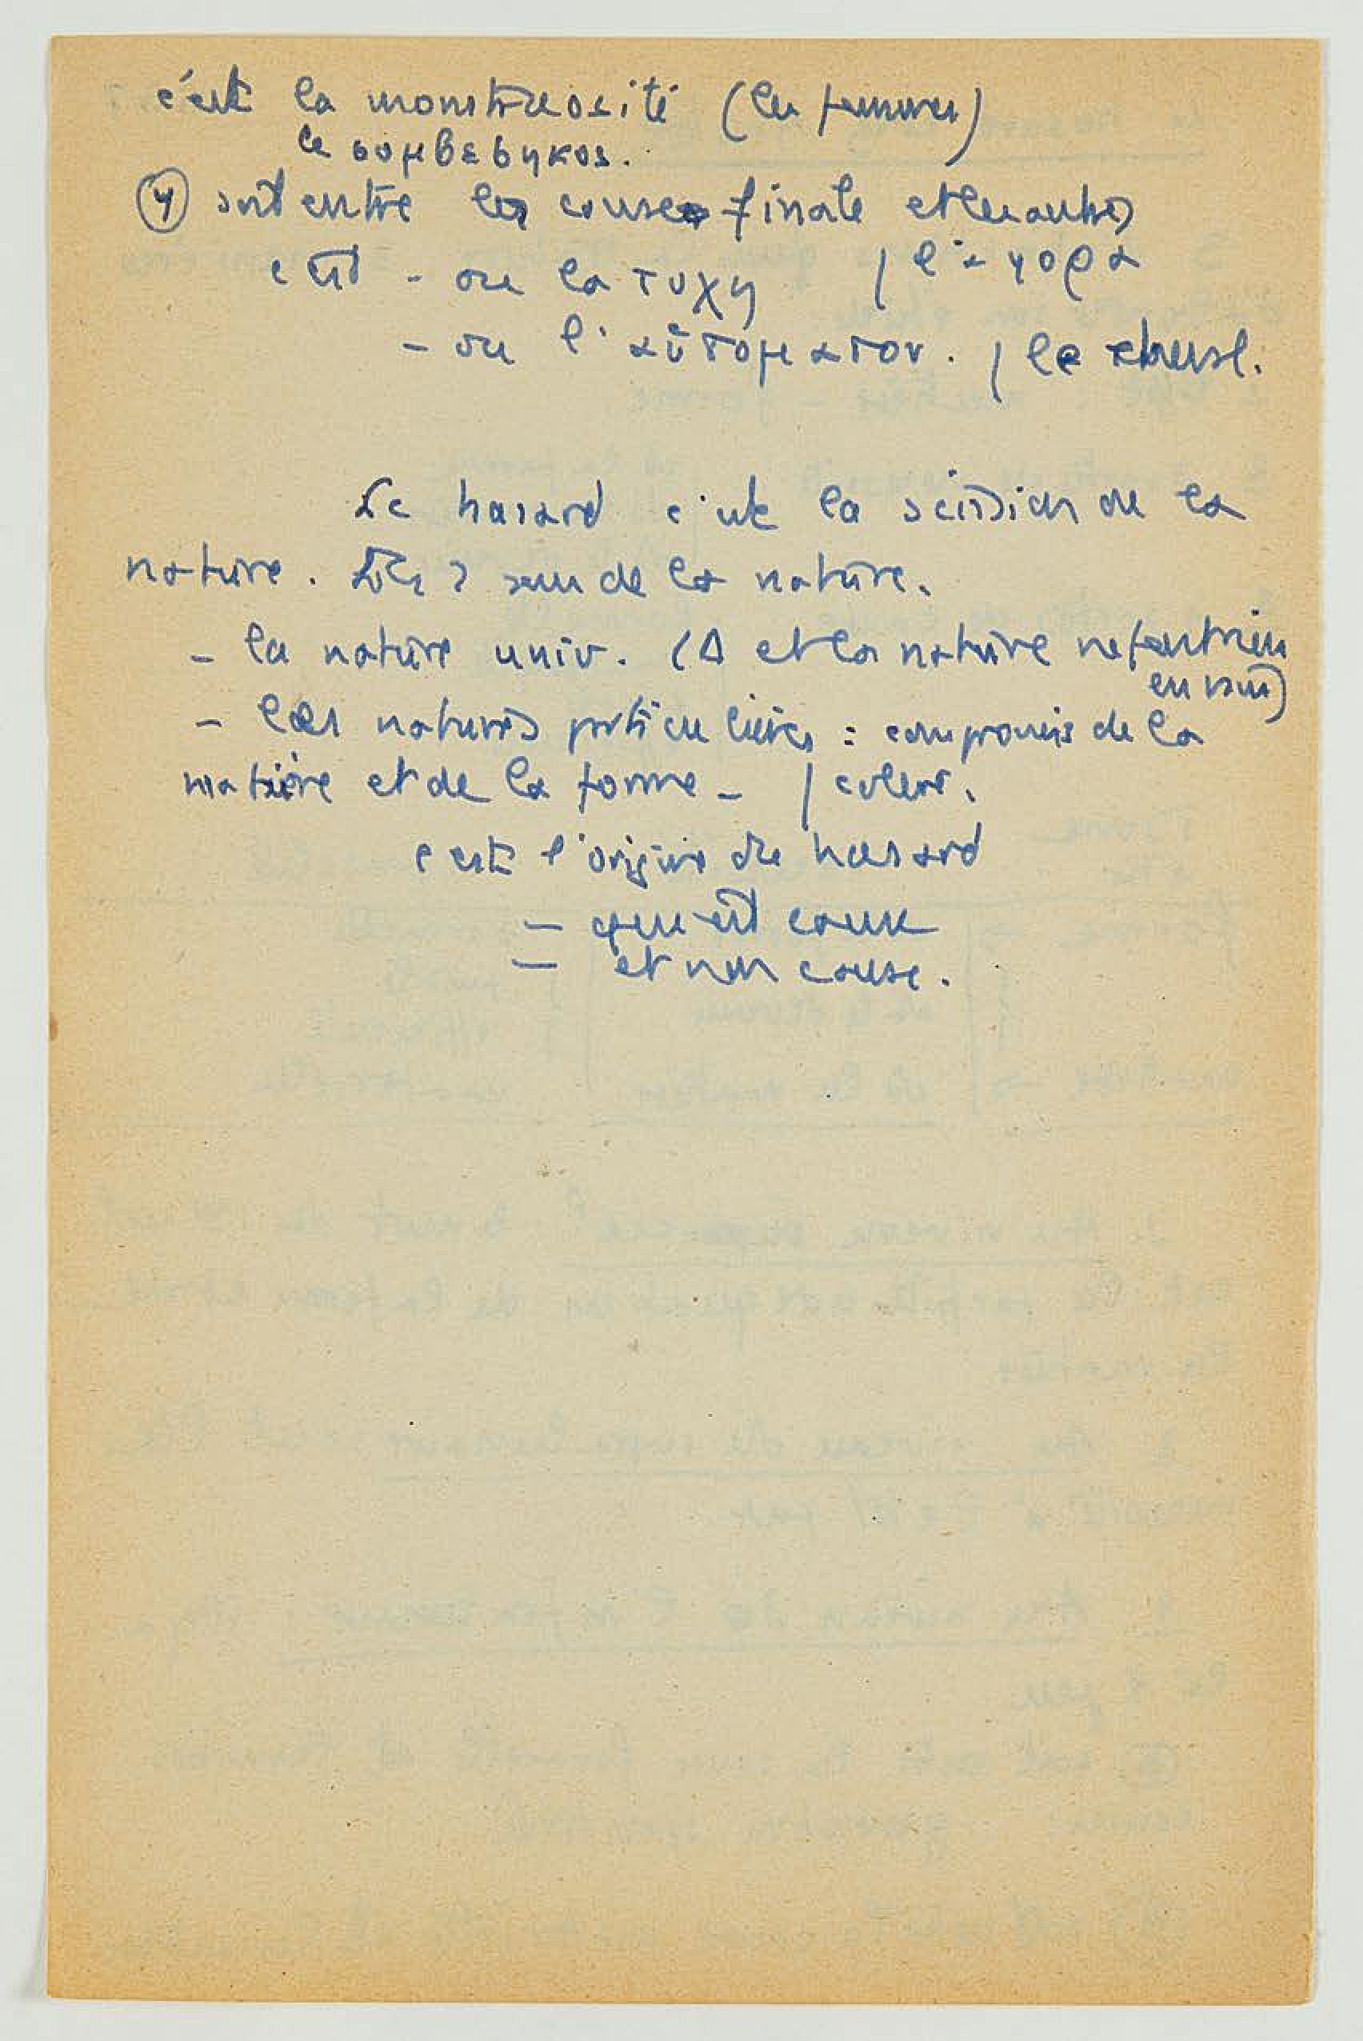 c'est la monstruosité (les femmes)
le συμβεβηκος.
γ soit entre les causes finale et les autres
c'est - ou la τυχη / l'αγορα
- ou l'αὐτοματον. / le cheval.
Le hasard c'est la scission de la
nature. Les 2 sens de la nature.
- la nature univ. (Δ et la nature ne font rien
en vain)
- les natures particulières : compromis de la
matière et de la forme - /
c'est l'origine du hasard
- qui est cause
- et non cause.